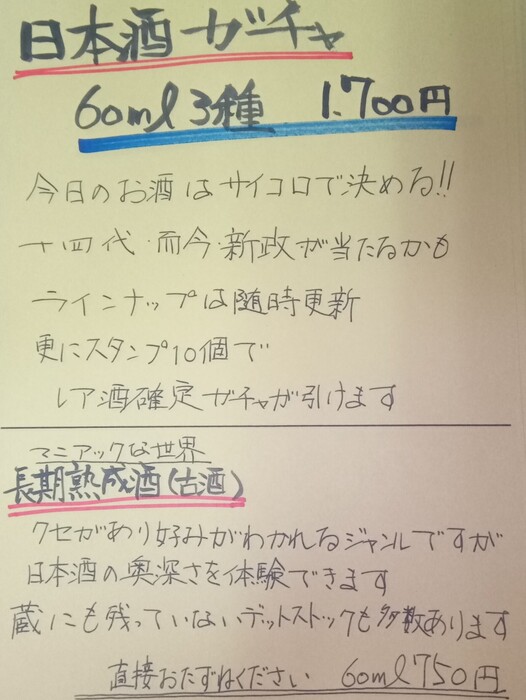 日本酒ガチャ
60ml 3種 1.700円
今日のお酒はサイコロで決める!!
十四代・而今・新政が当たるかも
ラインナップは随時更新
更にスタンプ10個で
レア酒確定ガチャが引けます
マニアックな世界
長期熟成酒(古酒)
クセがあり好みがわかれるジャンルですが
日本酒の奥深さを体験できます
蔵にも残っていないデットストックも多数あります
直接おたずねください 60ml 750円